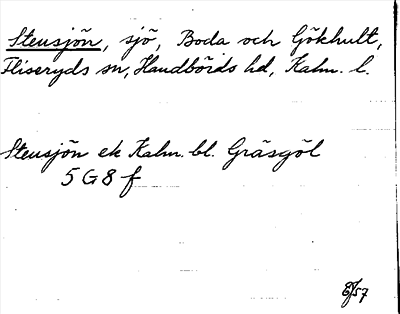 Stensjön, sjö, Boda och Gökhult,
Fliseryds sn, Handbörds hd, Kalm. l.
Stensjön ek Kalm. bl. Gräsgöl
5 G 8 f